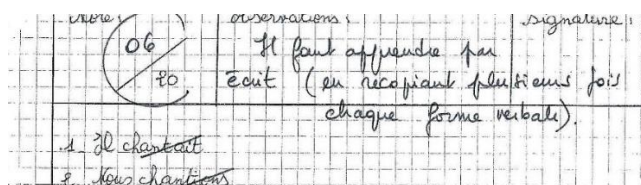 Note: observations: signature:
06 Il faut apprendre par
20 écrit (en recopiant plusieurs fois
chaque forme verbale).
1. Il chantait
2. Nous chantions